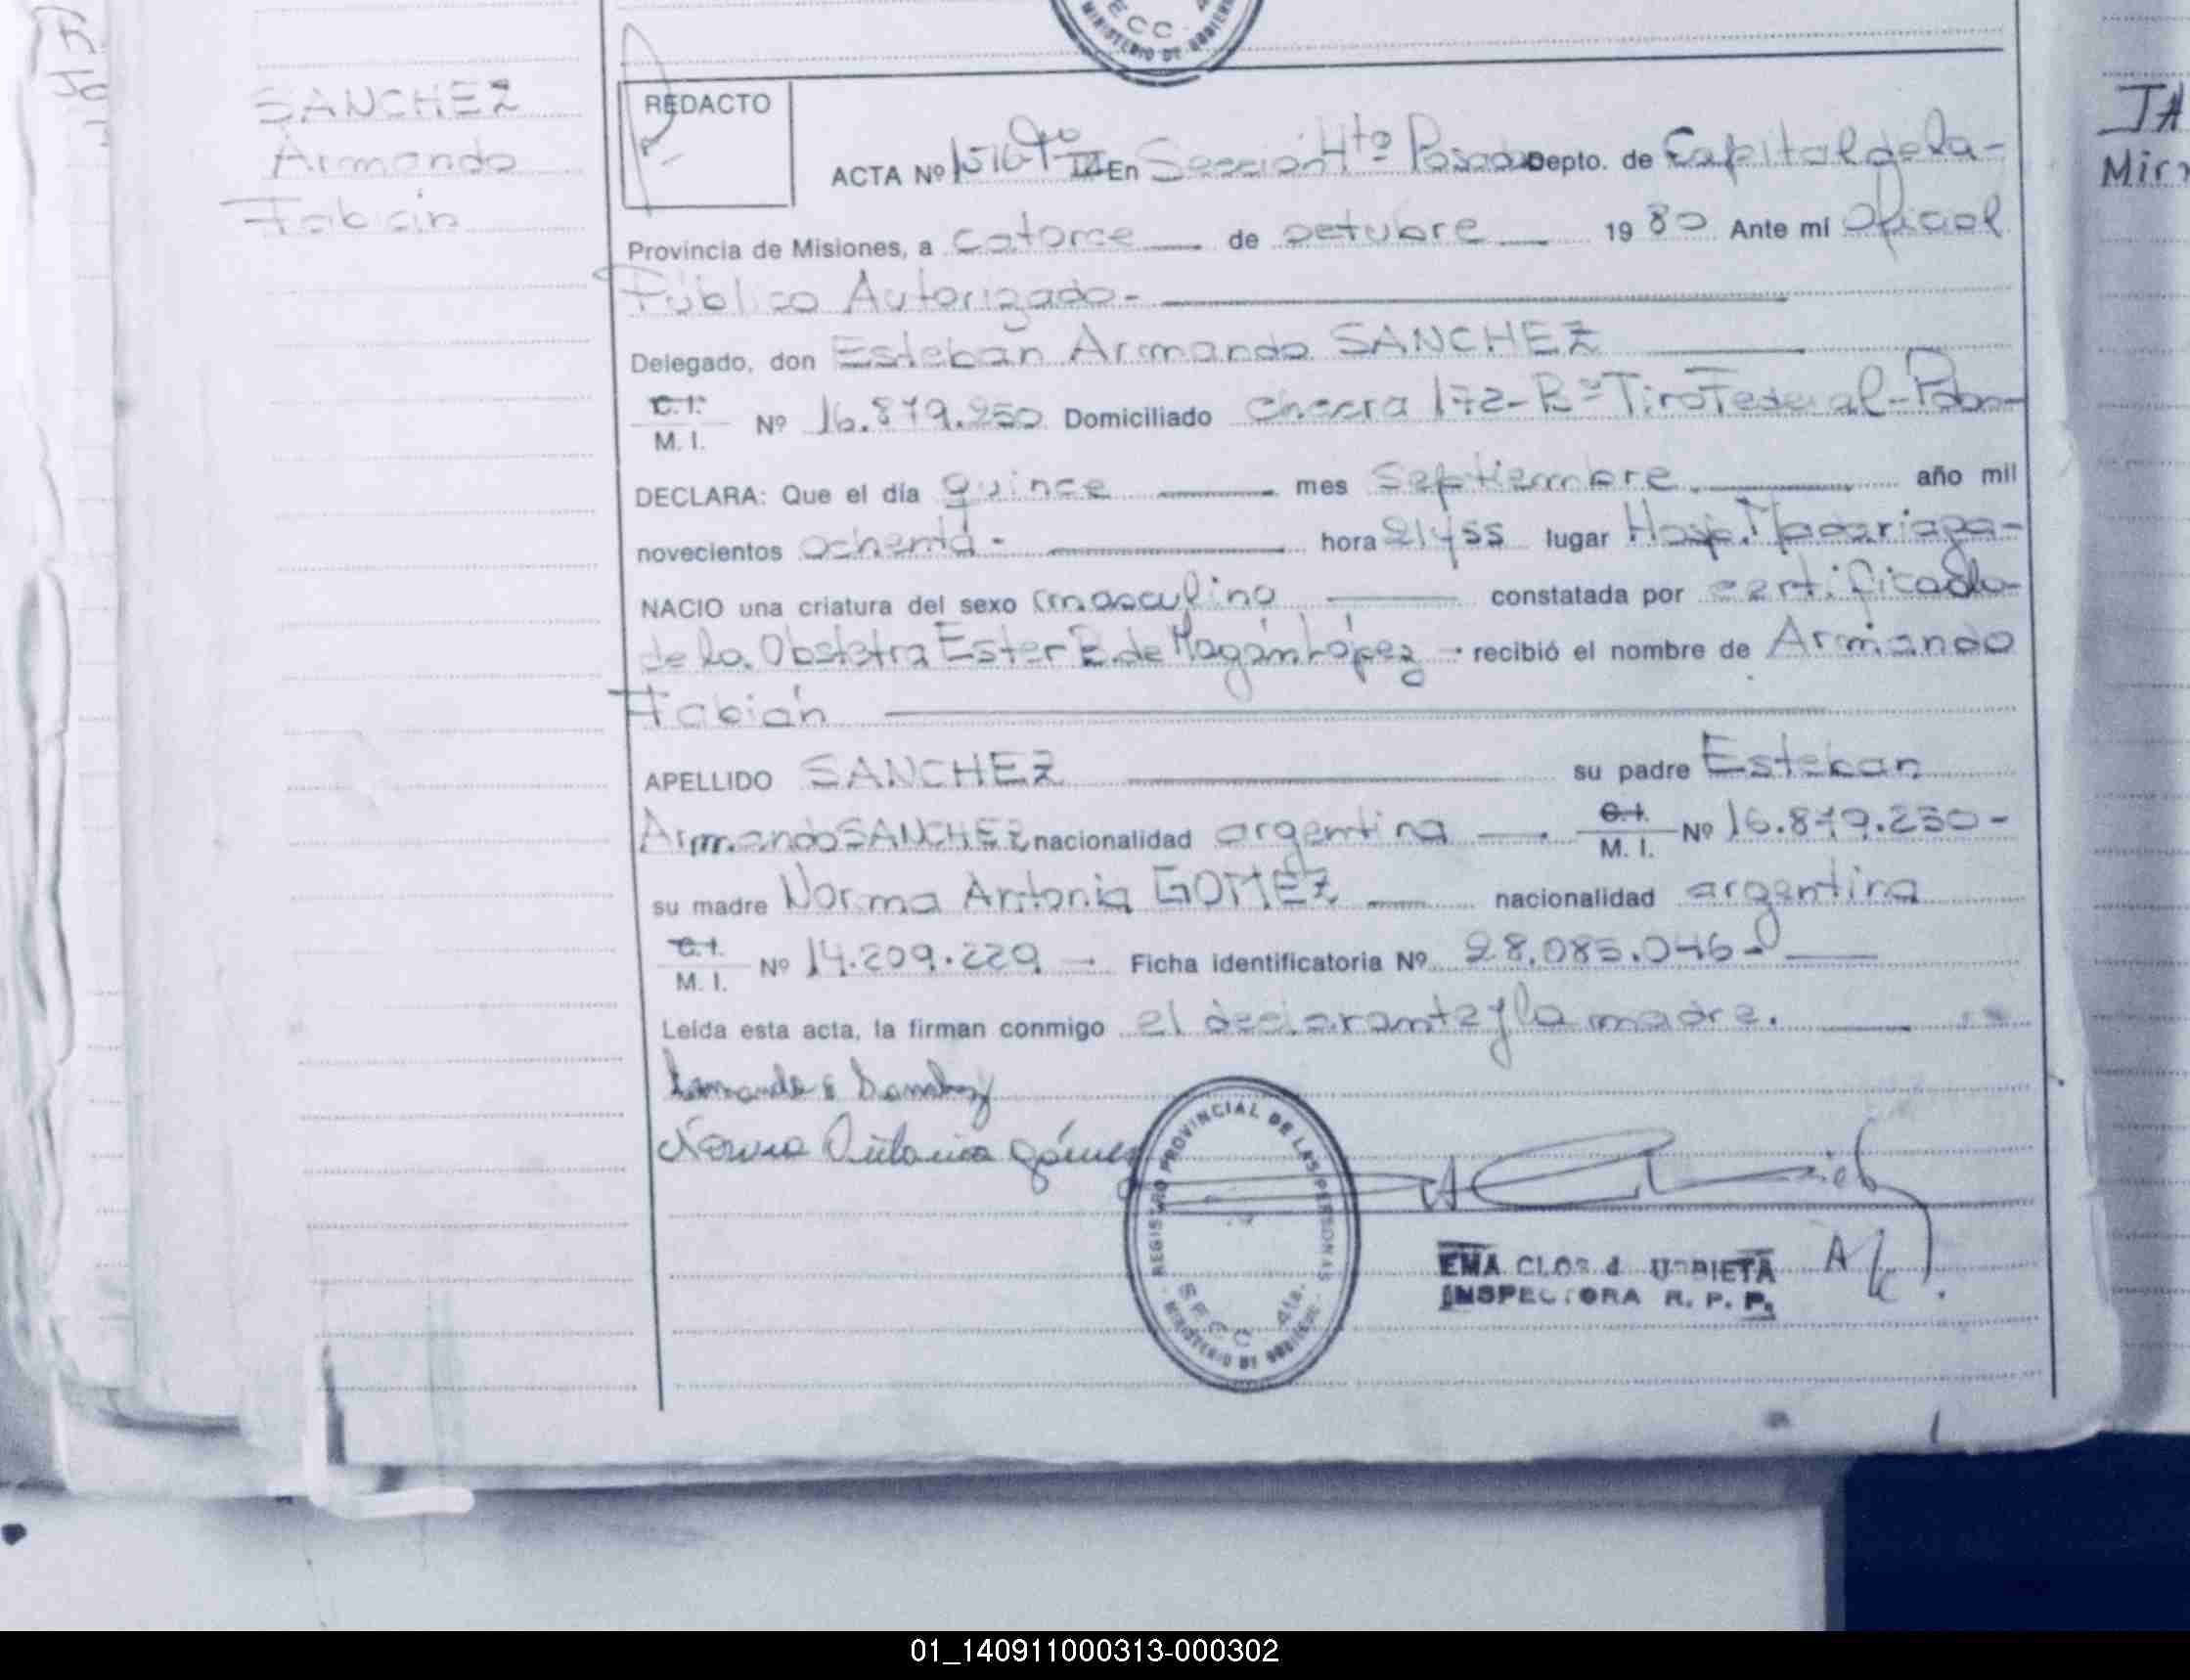 ECC.
MINISTERIO DE GOBIERNO
SANCHEZ
Armando
Fabián
REDACTO
ACTA Nº En Sección 4tª Posadas Depto. de Capital de la-
Provincia de Misiones, a catorce de octubre 1980 Ante mi Oficial
Público Autorizado-
Delegado, don Esteban Armando SANCHEZ
C. I.
M. I. Nº Domiciliado 172-Bº Tiro Federal-
DECLARA: Que el día quince mes septiembre año mil
novecientos ochenta- hora 21 y 55 lugar Hosp. Madariaga-
NACIO una criatura del sexo masculino constatada por certificado
de la Obstetra Ester E. de Magán López recibió el nombre de Armando
Fabián
APELLIDO SANCHEZ su padre Esteban
Armando SANCHEZ nacionalidad argentina C. I.
M. I. Nº
su madre Norma Antonia GOMEZ nacionalidad argentina
C. I.
M. I. Nº 14.209.229 Ficha identificatoria Nº 28.085.046-
Leída esta acta, la firman conmigo el declarante y la madre.
Norma Antonia Gómez
REGISTRO PROVINCIAL DE LAS PERSONAS
SECC 4ta.
MINISTERIO DE GOBIERNO
EMA CLOS d URRIETA
INSPECTORA R. P. P.
01_140911000313-000302